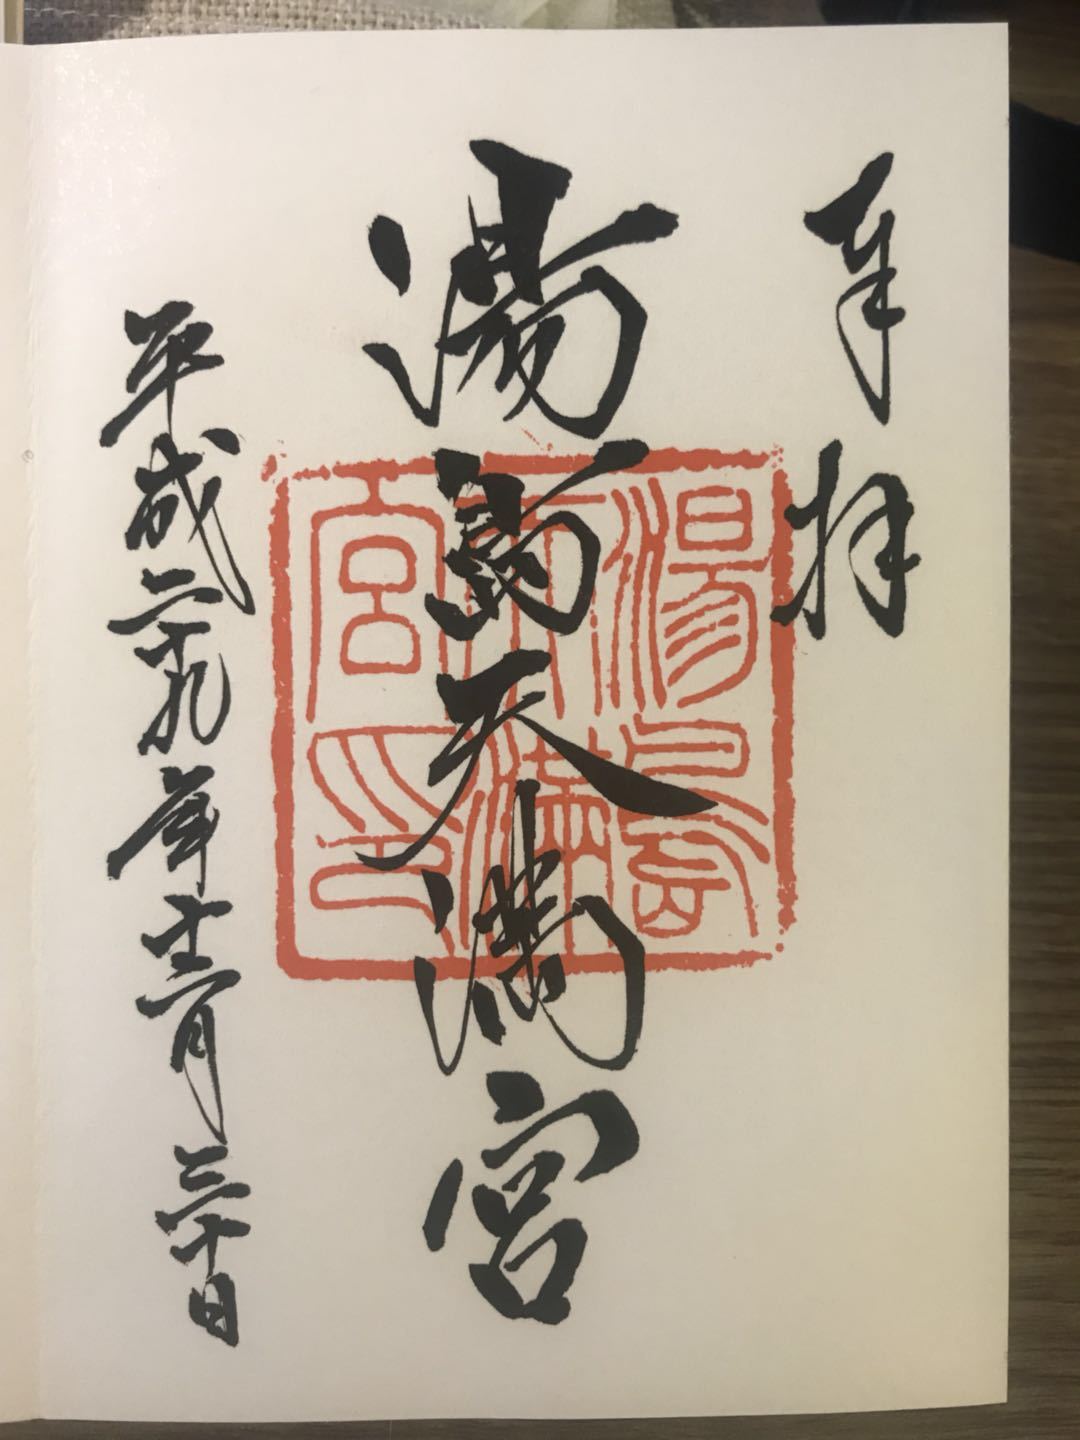 奉拝
湯島天満宮
平成二十九年十二月三十日
湯島天満宮印